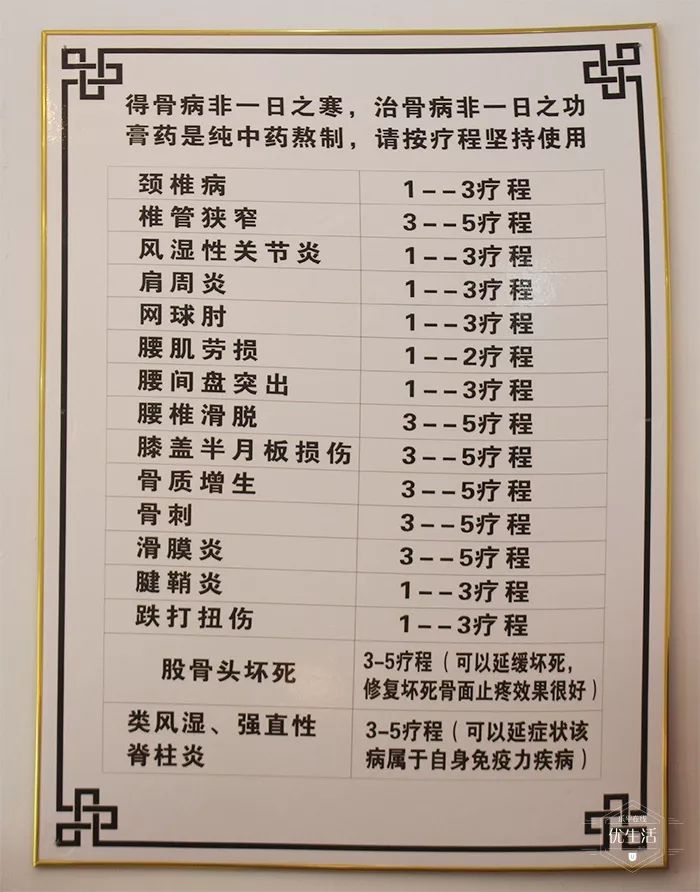 得骨病非一日之寒，治骨病非一日之功
膏药是纯中药熬制，请按疗程坚持使用
颈椎病 1--3疗程
椎管狭窄 3--5疗程
风湿性关节炎 1--3疗程
肩周炎 1--3疗程
网球肘 1--3疗程
腰肌劳损 1--2疗程
腰间盘突出 1--3疗程
腰椎滑脱 3--5疗程
膝盖半月板损伤 3--5疗程
骨质增生 3--5疗程
骨刺 3--5疗程
滑膜炎 3--5疗程
腱鞘炎 1--3疗程
跌打扭伤 1--3疗程
股骨头坏死 3-5疗程（可以延缓坏死，
修复坏死骨面止疼效果很好）
类风湿、强直性 3-5疗程（可以延症状该
脊柱炎 病属于自身免疫力疾病）
优生活